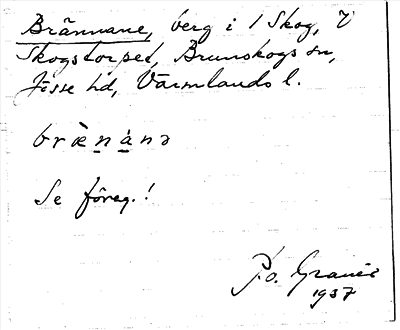 Brännane, berg i 1 Skog, V
Skogstorpet, Brunskogs sn,
Jösse hd, Värmlands l.
bræ̀nánə
Se föreg.!
P.o. Granér
1937